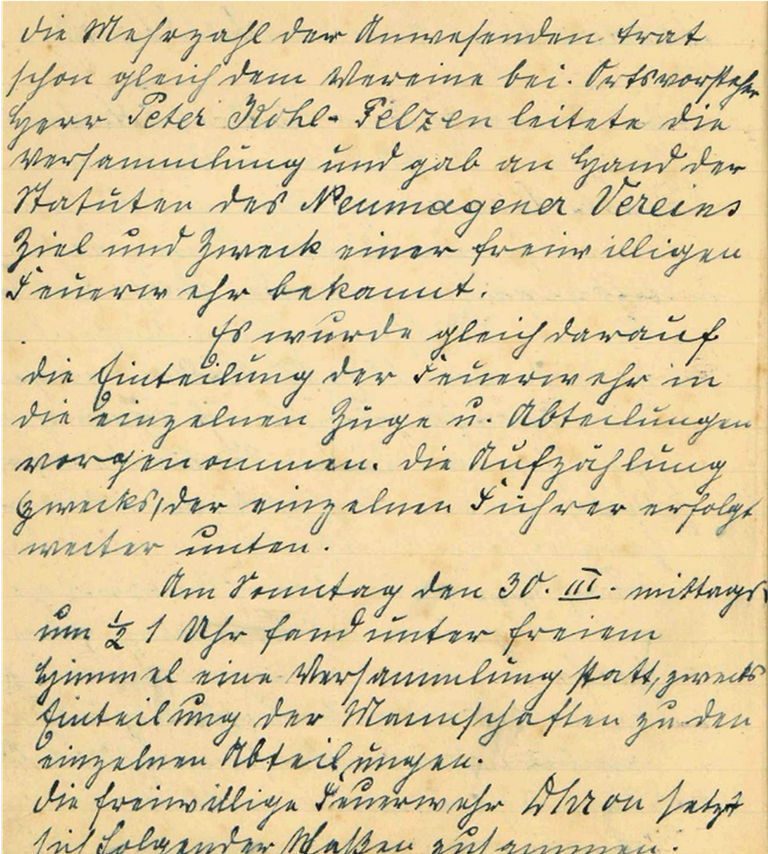 die Mehrzahl der Anwesenden trat
schon gleich dem Vereine bei. Ortsvorsteher
Herr Peter Kohl-Felzen leitete die
Versammlung und gab an Hand der
Statuten des Neumagener Vereins
Ziel und Zweck einer freiwilligen
Feuerwehr bekannt.
Es wurde gleich darauf
die Einteilung der Feuerwehr in
die einzelnen Züge u. Abteilungen
vorgenommen. Die Aufzählung
zwecks, der einzelnen Führer erfolgt
weiter unten.
Am Sonntag den 30. III. mittags
um ½ 1 Uhr fand unter freiem
Himmel eine Versammlung statt, zwecks
Einteilung der Mannschaften zu den
einzelnen Abteilungen.
Die freiwillige Feuerwehr Dhron setzt
sich folgender Maßen zusammen: